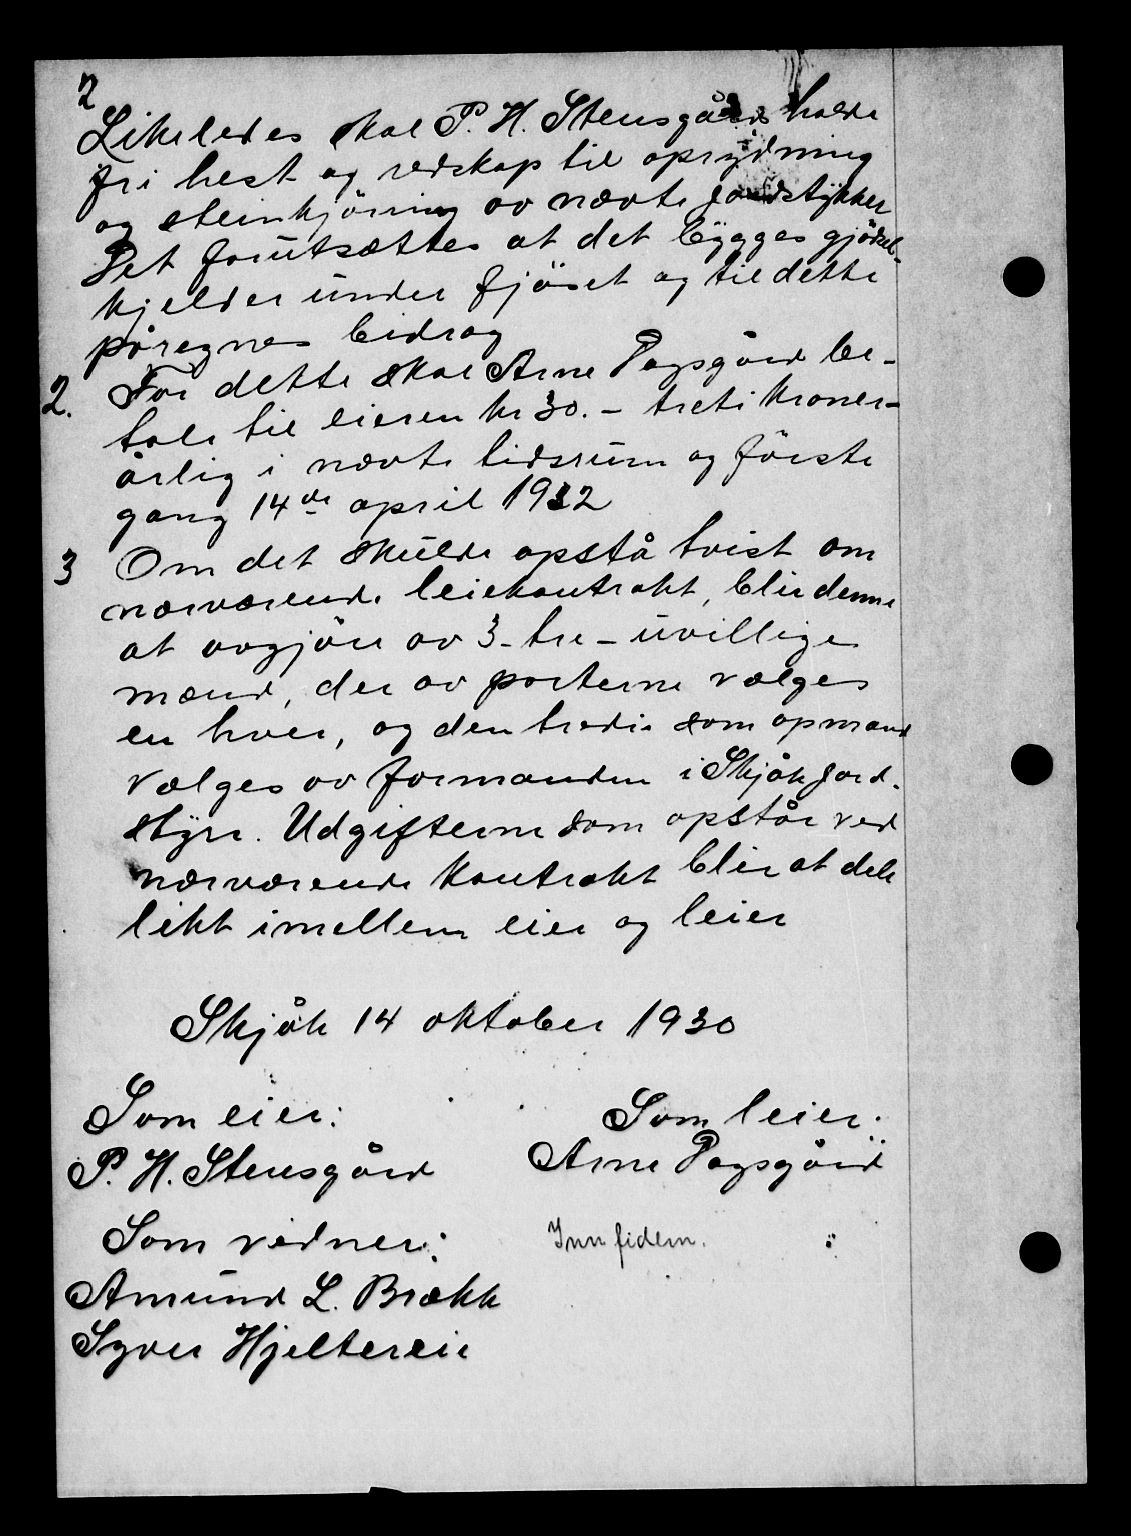 2
Likeledes skal P. H. Stensgård holde
fri hest og redskap til oprydning
og steinkjöring av nævte jordstykker
Det forutsættes at det bygges gjödsel-
kjelder under fjöset og til dette
påregnes bidrag
2. For dette skal Arne Pagsgård be-
tale til eieren kr 30.- treti kroner-
årlig i nævte tidsrum og förste
gang 14de april 1932
3 Om det skulde opstå tvist om
nærværende leiekontrakt, blir denne
at avgjöre av 3- tre - uvillige
mænd, der av parterne vælges
en hver, og den tredie som opmand
vælges av formanden i Skjåk jord-
styre. Udgifterne som opstår ved
nærværende kontrakt blir at dele
likt imellem eier og leier
Skjåk 14 oktober 1930
Som eier: Som leier.
P. H. Stensgård Arne Pagsgård
Som vidner: Inn fidem.
Amund L. Brækk
Syver Hjeltereie